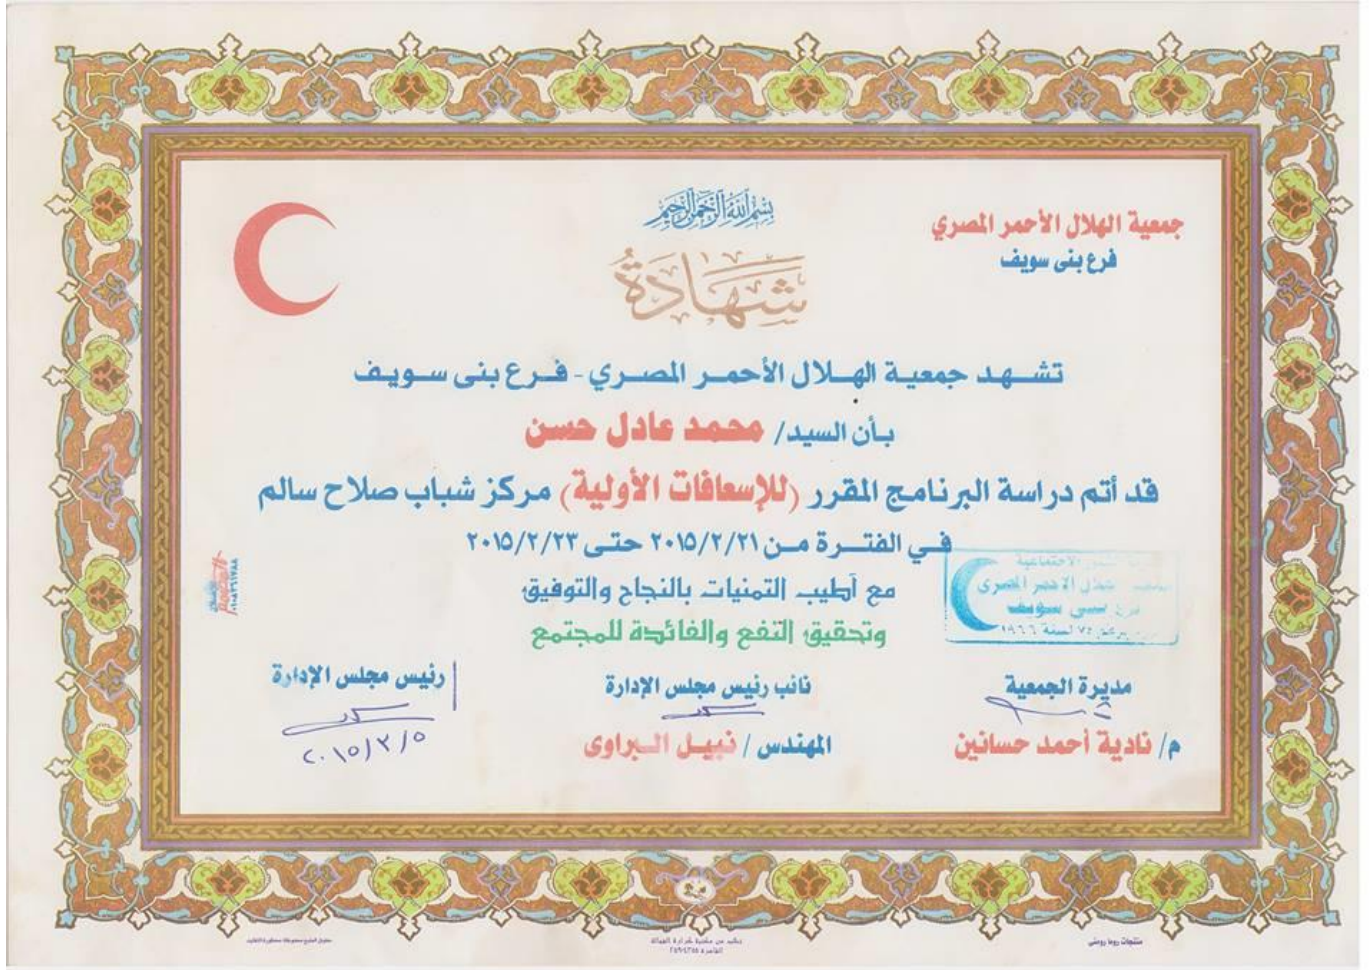 بسم الله الرحمن الرحيم
جمعية الهلال الأحمر المصري
فرع بنى سويف
شهادة
تشهد جمعية الهلال الأحمر المصري - فرع بنى سويف
بأن السيد/ محمد عادل حسن
قد أتم دراسة البرنامج المقرر (للإسعافات الأولية) مركز شباب صلاح سالم
في الفترة من ٢٠١٥/٢/٢١ حتى ٢٠١٥/٢/٢٣
مع أطيب التمنيات بالنجاح والتوفيق
وتحقيق النفع والفائدة للمجتمع
الاجتماعية
الهلال الاحمر المصرى
فرع بنى سويف
٧٤ لسنة ١٩٦٦
مديرة الجمعية
م/ نادية أحمد حسانين
نائب رئيس مجلس الإدارة
المهندس / نبيل البراوى
رئيس مجلس الإدارة
٢٠١٥/٣/٥
منتجات روما رومنى